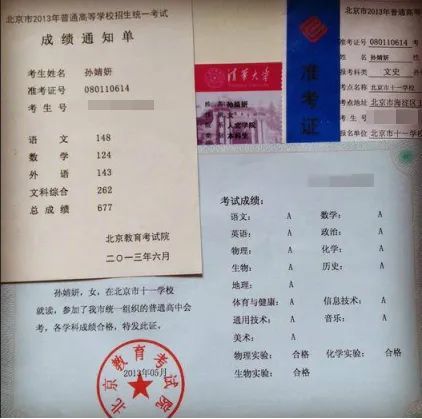 北京市2013年普通高等学校招生统一考试
成绩通知单
考生姓名 孙婧妍
准考证号 080110614
考生号
语文 148
数学 124
外语 143
文科综合 262
总成绩 677
北京教育考试院
二〇一三年六月
清华大学
孙婧妍
女
人文学院
本科生
准考证
准考证号 080110614
姓名 孙婧妍
报考科类 文史
考点名称 北京市十一学校
考点地址 北京市海淀区玉
考生号
报名单位 北京市十一学校
孙婧妍，女，在北京市十一学校
就读，参加了我市统一组织的普通高中会
考，各学科成绩合格，特发此证。
北京教育考试院
2013年05月
考试成绩：
语文： A 数学： A
英语： A 政治： A
物理： A 化学： A
生物： A 历史： A
地理： A
体育与健康： A 信息技术： A
通用技术： A 音乐： A
美术： A
物理实验： 合格 化学实验： 合格
生物实验： 合格